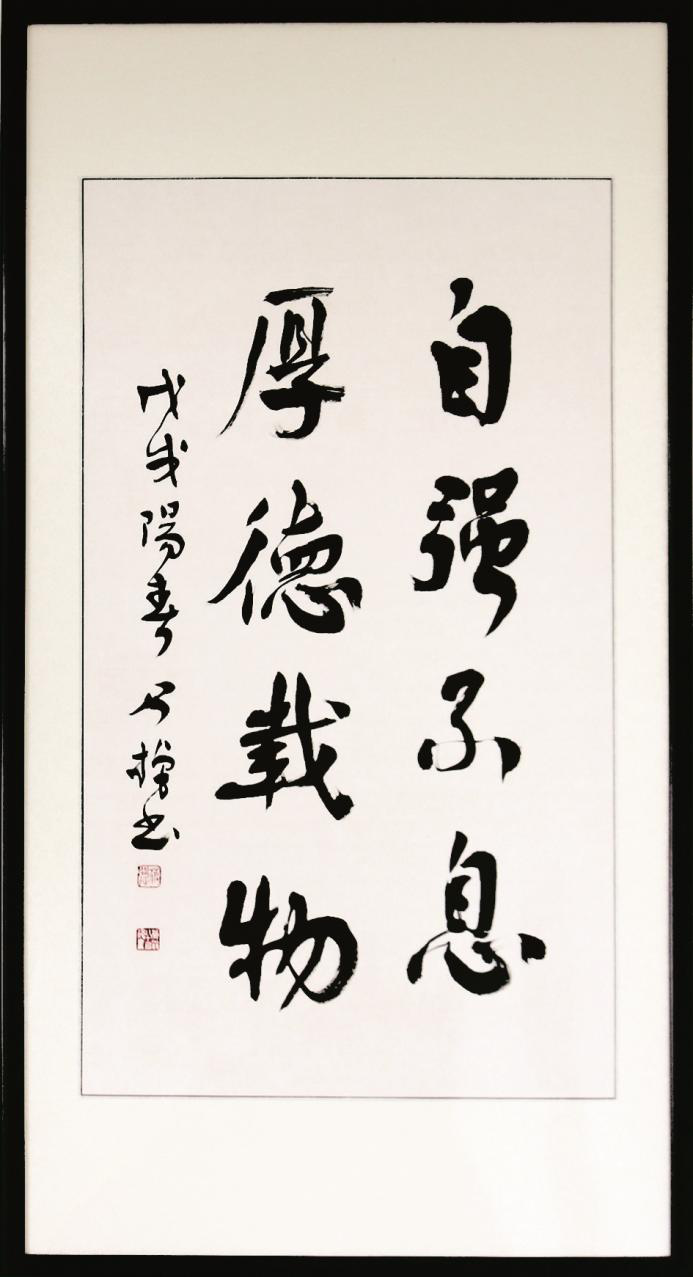 自强不息
厚德载物
戊戌陽春 书